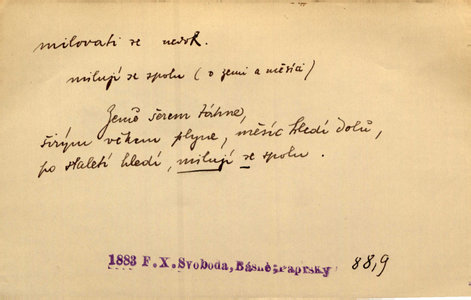 milovati se nedok.
milují se spolu (o zemi a měsíci)
Země šerem táhne,
širým věkem plyne, měsíc hledí dolů,
po staletí hledí, milují se spolu.
1883 F.X.Svoboda, Básně:Paprsky 88,9